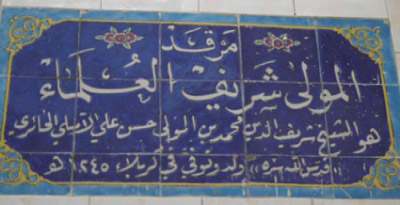 مرقد
المولى شريف العلماء
هو الشيخ شريف الدين محمد بن المولى حسن علي الآملي الحائري
«قدس الله سره» ولد وتوفي في كربلاء ١٢٤٥هـ